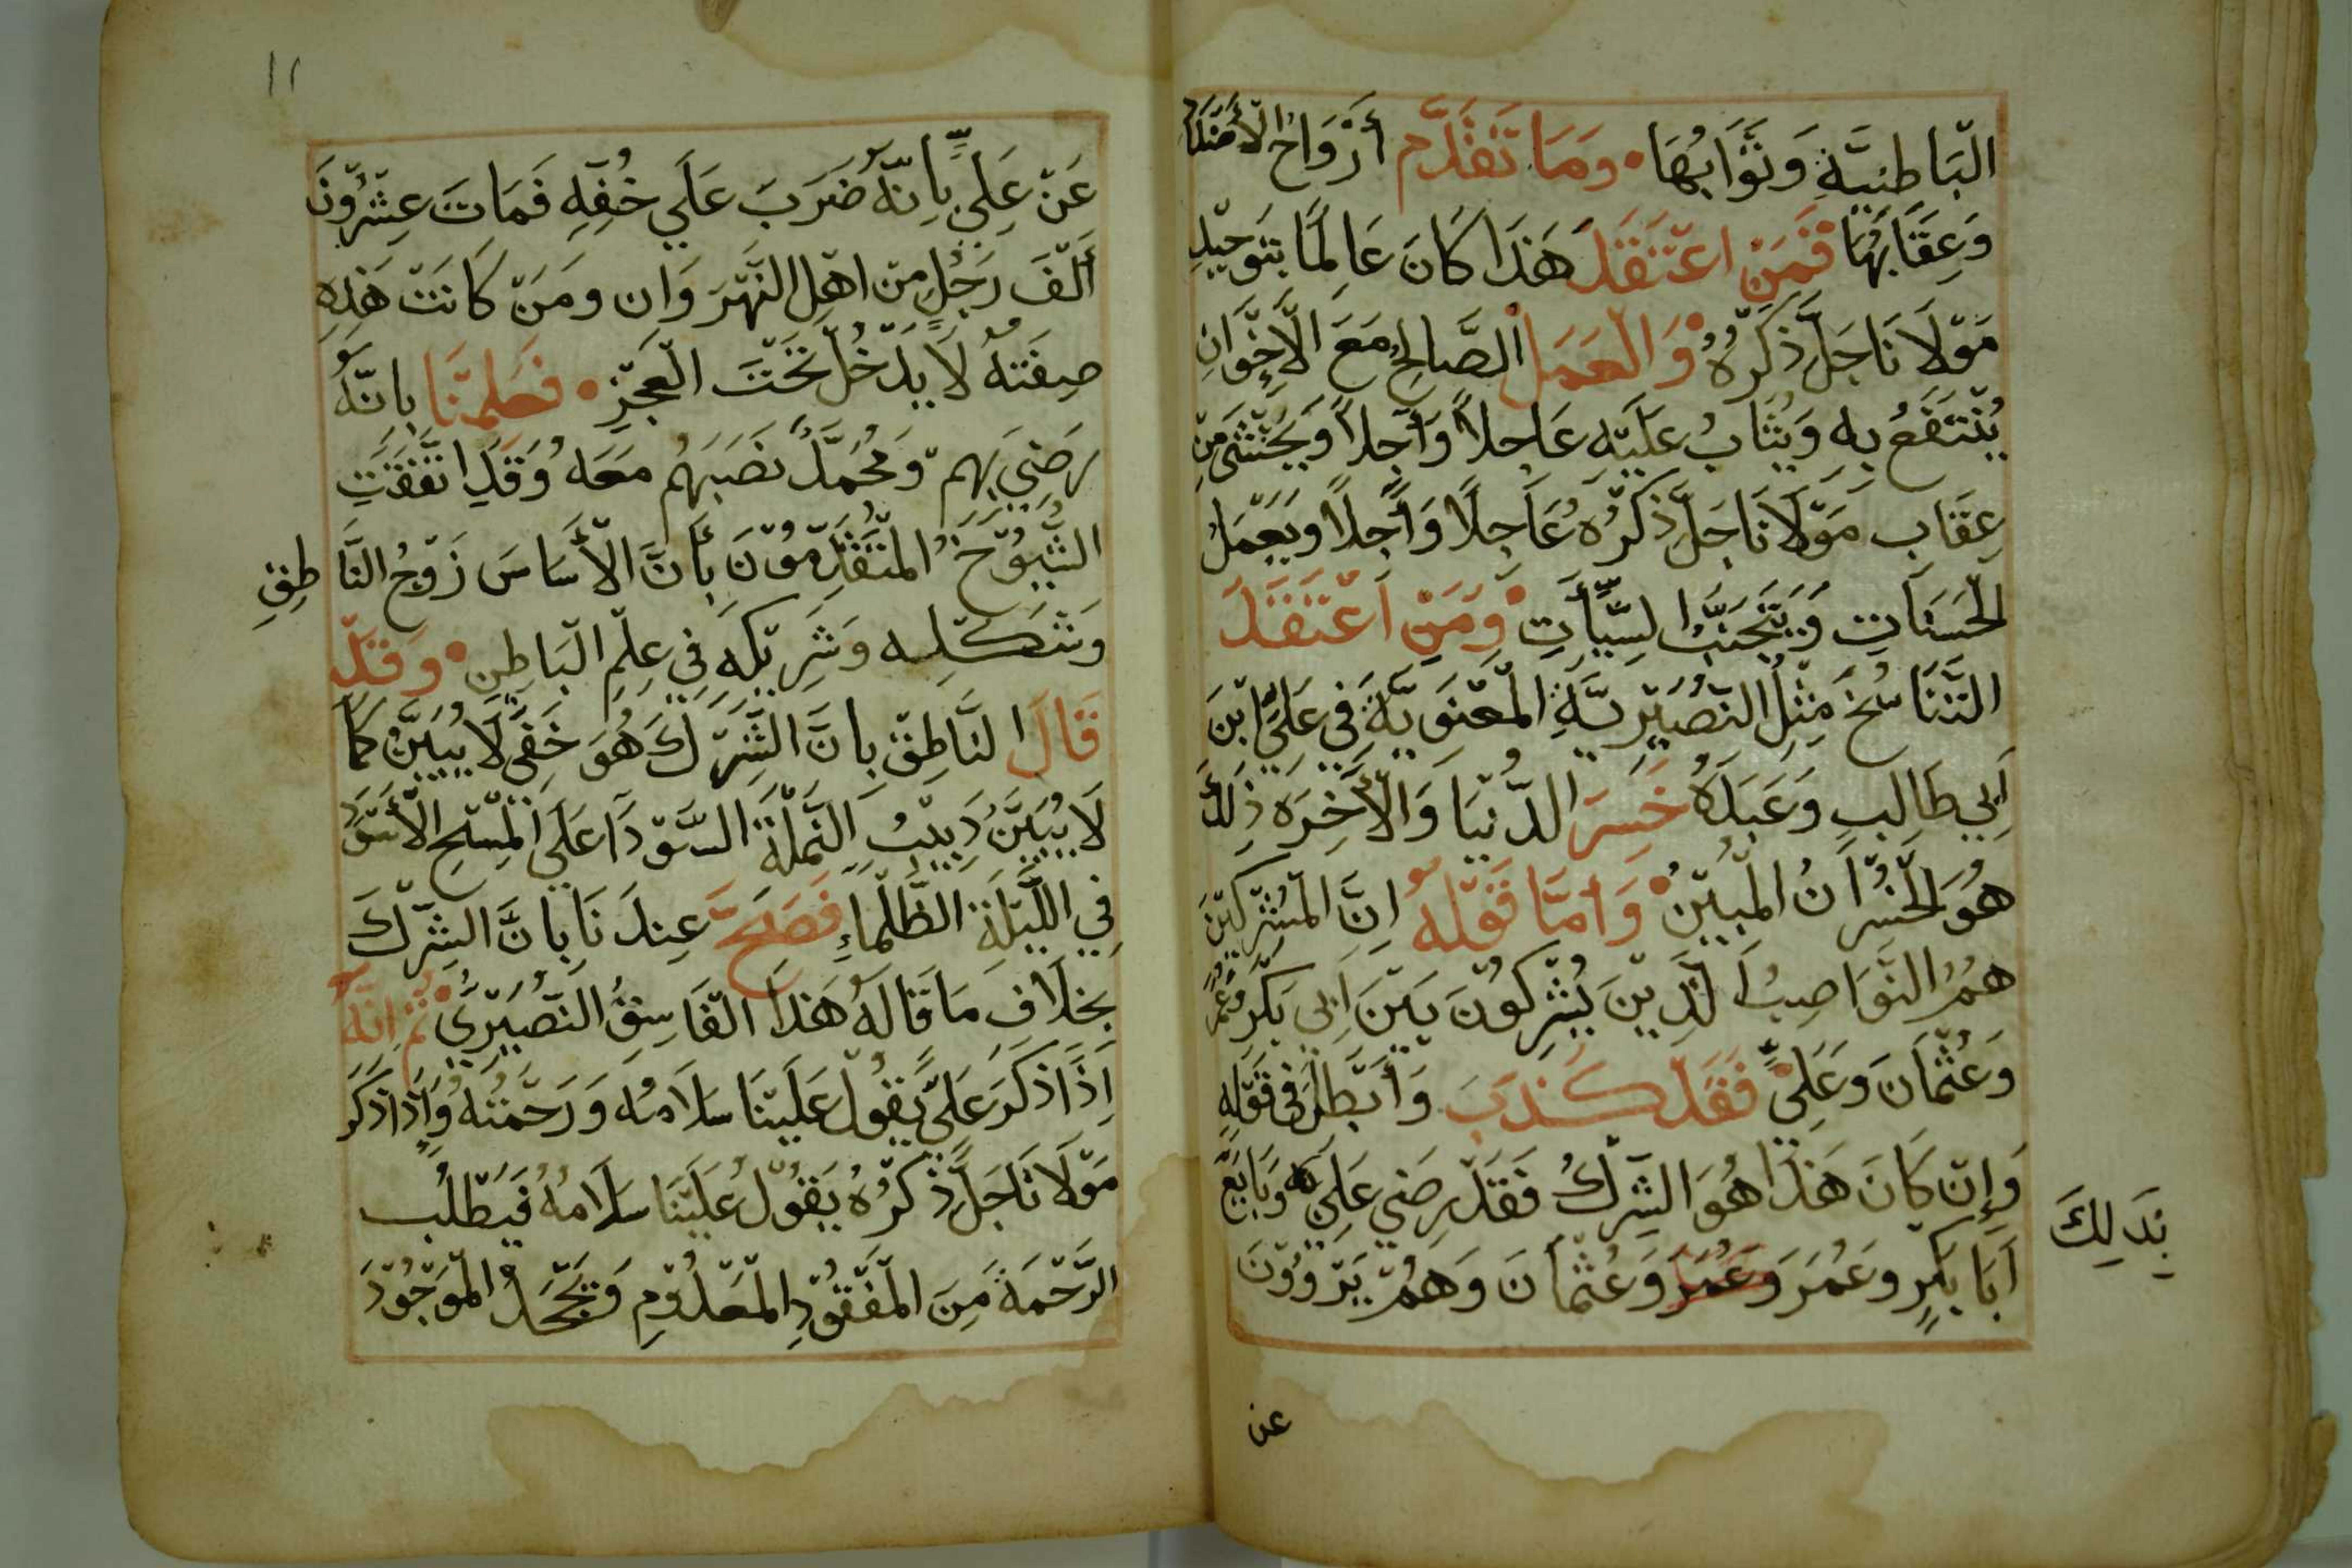 البَاطِنِيَّةِ وَثَوَابُهَا • وَمَا تَقَدَّم أَزْوَاحُ الأَضْدَادِ
وَعِقَابُهَا فَمَنِ اعْتَقَدَ هَذَا كَانَ عَالِمًا بِتَوْحِيْدِ
مَوْلَانَا جَلَّ ذِكْرُهُ وَالْعَمَلِ الصَّالِحُ مَعَ الْاِخْوَانِ
يُنْتَفَعُ بِهِ وَيُثَابُ عَلَيْهِ عَاجِلاً وَآجِلاً وَيَخْتَشَى مِنْ
عِقَابِ مَوْلَانَا جَلَّ ذِكْرُهُ عَاجِلًا وَآجِلاً وَيَعْمَلُ
الْحَسَنَاتِ وَيَتَجَنَّبُ السِّيِّأَتِ • وَمَنِ اَعْتَقَدَ
التَّنَاسُخَ مِثْلُ النُّصَيْرِيَّةِ الْمَعْنَوِيَّةِ فِي عَلِيِّ ابْنَ
اَبِي طَالِبٍ وَعَبَدَهُ خَسِرَ الدُّنْيَا وَالْأَخِرَةِ ذَلِكَ
هُوَ الْخُسْرَانُ الْمُبِيْنُ • وَأمَّا قَوْلهُ اِنَّ الْمُشْرِكِيْنَ
هُمُ النَّوَاصِبُ اَلَّذِيْنَ يُشْرِكُوْنَ بَيْنَ اَبِي بَكْرٍ وَعُمَرَ
وَعُثْمَانَ وَعَلِيٍّ فَقَدْ كَذَبَ وَأَبْطَلَ فِي قَوْلِهِ
وَإِنْ كَانَ هَذَا هُوَ الشِّرْكُ فَقَدْ رَضِيَ عَلِي بِذَلِكَ وَبَايَعَ
اَبَا بَكْرٍ وَعُمَرَ وَعُمَرَ وَعُثْمَانَ وَهُمْ يَرْوُوْنَ
عن
١١
عَنْ عَلِيٍّ بِاِنّهُ ضَرَبَ عَلَي خُفِّهِ فَمَاتَ عِشْرُوْنَ
أَلْفَ رَجُلٍ مِنْ اهْلِ النَّهْرَوَانِ وَمَنْ كَانَتْ هَذِهِ
صِفَتهُ لَا يَدْخُلُ تَحْتَ الْعَجْزِ • فَعَلِمْنَا بِاَنَّهُ
رَضِيَ بِهِمْ وَمُحَمَّدٌ نَصَبَهُم مَعَهُ وَقَدِ اتَّفَقَتِ
الشُّيُوْخُ الْمُتَقَدِّمُوْنَ بَأَنَّ الْأَسَاسَ زَوْجُ النَّاطِقِ
وَشَكْلِه وَشَرِيْكهُ فِي عِلْمِ الْبَاطِنِ • وَقَدْ
قَالَ النَّاطِقْ بِانَّ الشِّرْكَ هُوَ خَفِيٌّ لَا يُبَيَّنُ كَمَا
لَا يُبَيَّنُ دَبِيْبُ النَّمْلَةِ السَّوْدَا عَلَى الْمِسْحِ الْأَسْوَدِ
فِي اللَّيْلَةِ الظَّلْمَاءِ فَصَحَّ عِنْدَنَا بِانَّ الشِّرْكَ
بِخِلَافِ مَا قَالَهُ هَذَا الفَاسِقُ النُّصَيْرِيُّ • ثُمَّ اِنَّهُ
اِذَا ذَكَرَ عَلِيّ يَقُوْلُ عَلَيْنَا سَلَامهُ وَرَحْمَتُهُ وَاِذَا ذَكَرَ
مَوْلَانَا جَلَّ ذِكْرُهُ يَقُوْلُ عَلَيْنَا سَلَامهُ فَيَطْلُبُ
الرَّحْمَةَ مِنَ الْمَفْقُوْدِ الْمَعْدُوْمِ وَيَجْحَدُ الْمَوْجُوْدَ